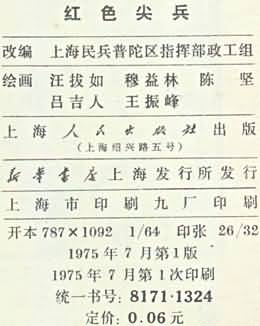 红色尖兵
改编 上海民兵普陀区指挥部政工组
绘画 汪拔如 穆益林 陈坚
吕吉人 王振峰
上海人民出版社出版
(上海绍兴路五号)
新华书店上海发行所发行
上海市印刷九厂印刷
开本 787×1092 1/64 印张 26/32
1975年7月第1版
1975年7月第1次印刷
统一书号: 8171·1324
定价: 0.06元